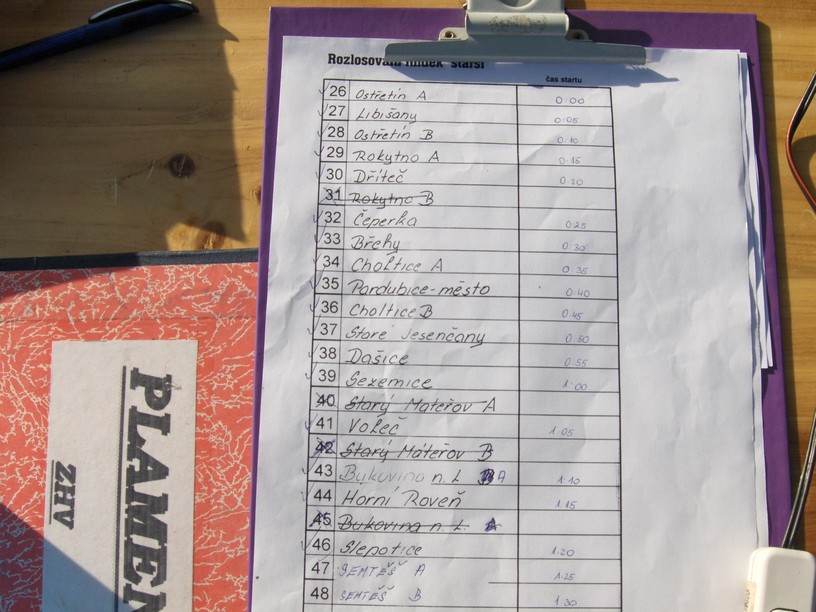 Rozlosování hlídek starší
čas startu
26 Ostřetín A 0:00
27 Libišany 0:05
28 Ostřetín B 0:10
29 Rokytno A 0:15
30 Dříteč 0:20
31 Rokytno B
32 Čeperka 0:25
33 Břehy 0:30
34 Choltice A 0:35
35 Pardubice-město 0:40
36 Choltice B 0:45
37 Staré Jesenčany 0:50
38 Dašice 0:55
39 Sezemice 1:00
40 Starý Mateřov A
41 Voleč 1:05
42 Starý Máteřov B
43 Bukovina n. L A 1:10
44 Horní Roveň 1:15
45 Bukovina n. L. A
46 Slepotice 1:20
47 SEMTĚŠ A 1:25
48 SEMTĚŠ B 1:30
PLAMEN
ZHV